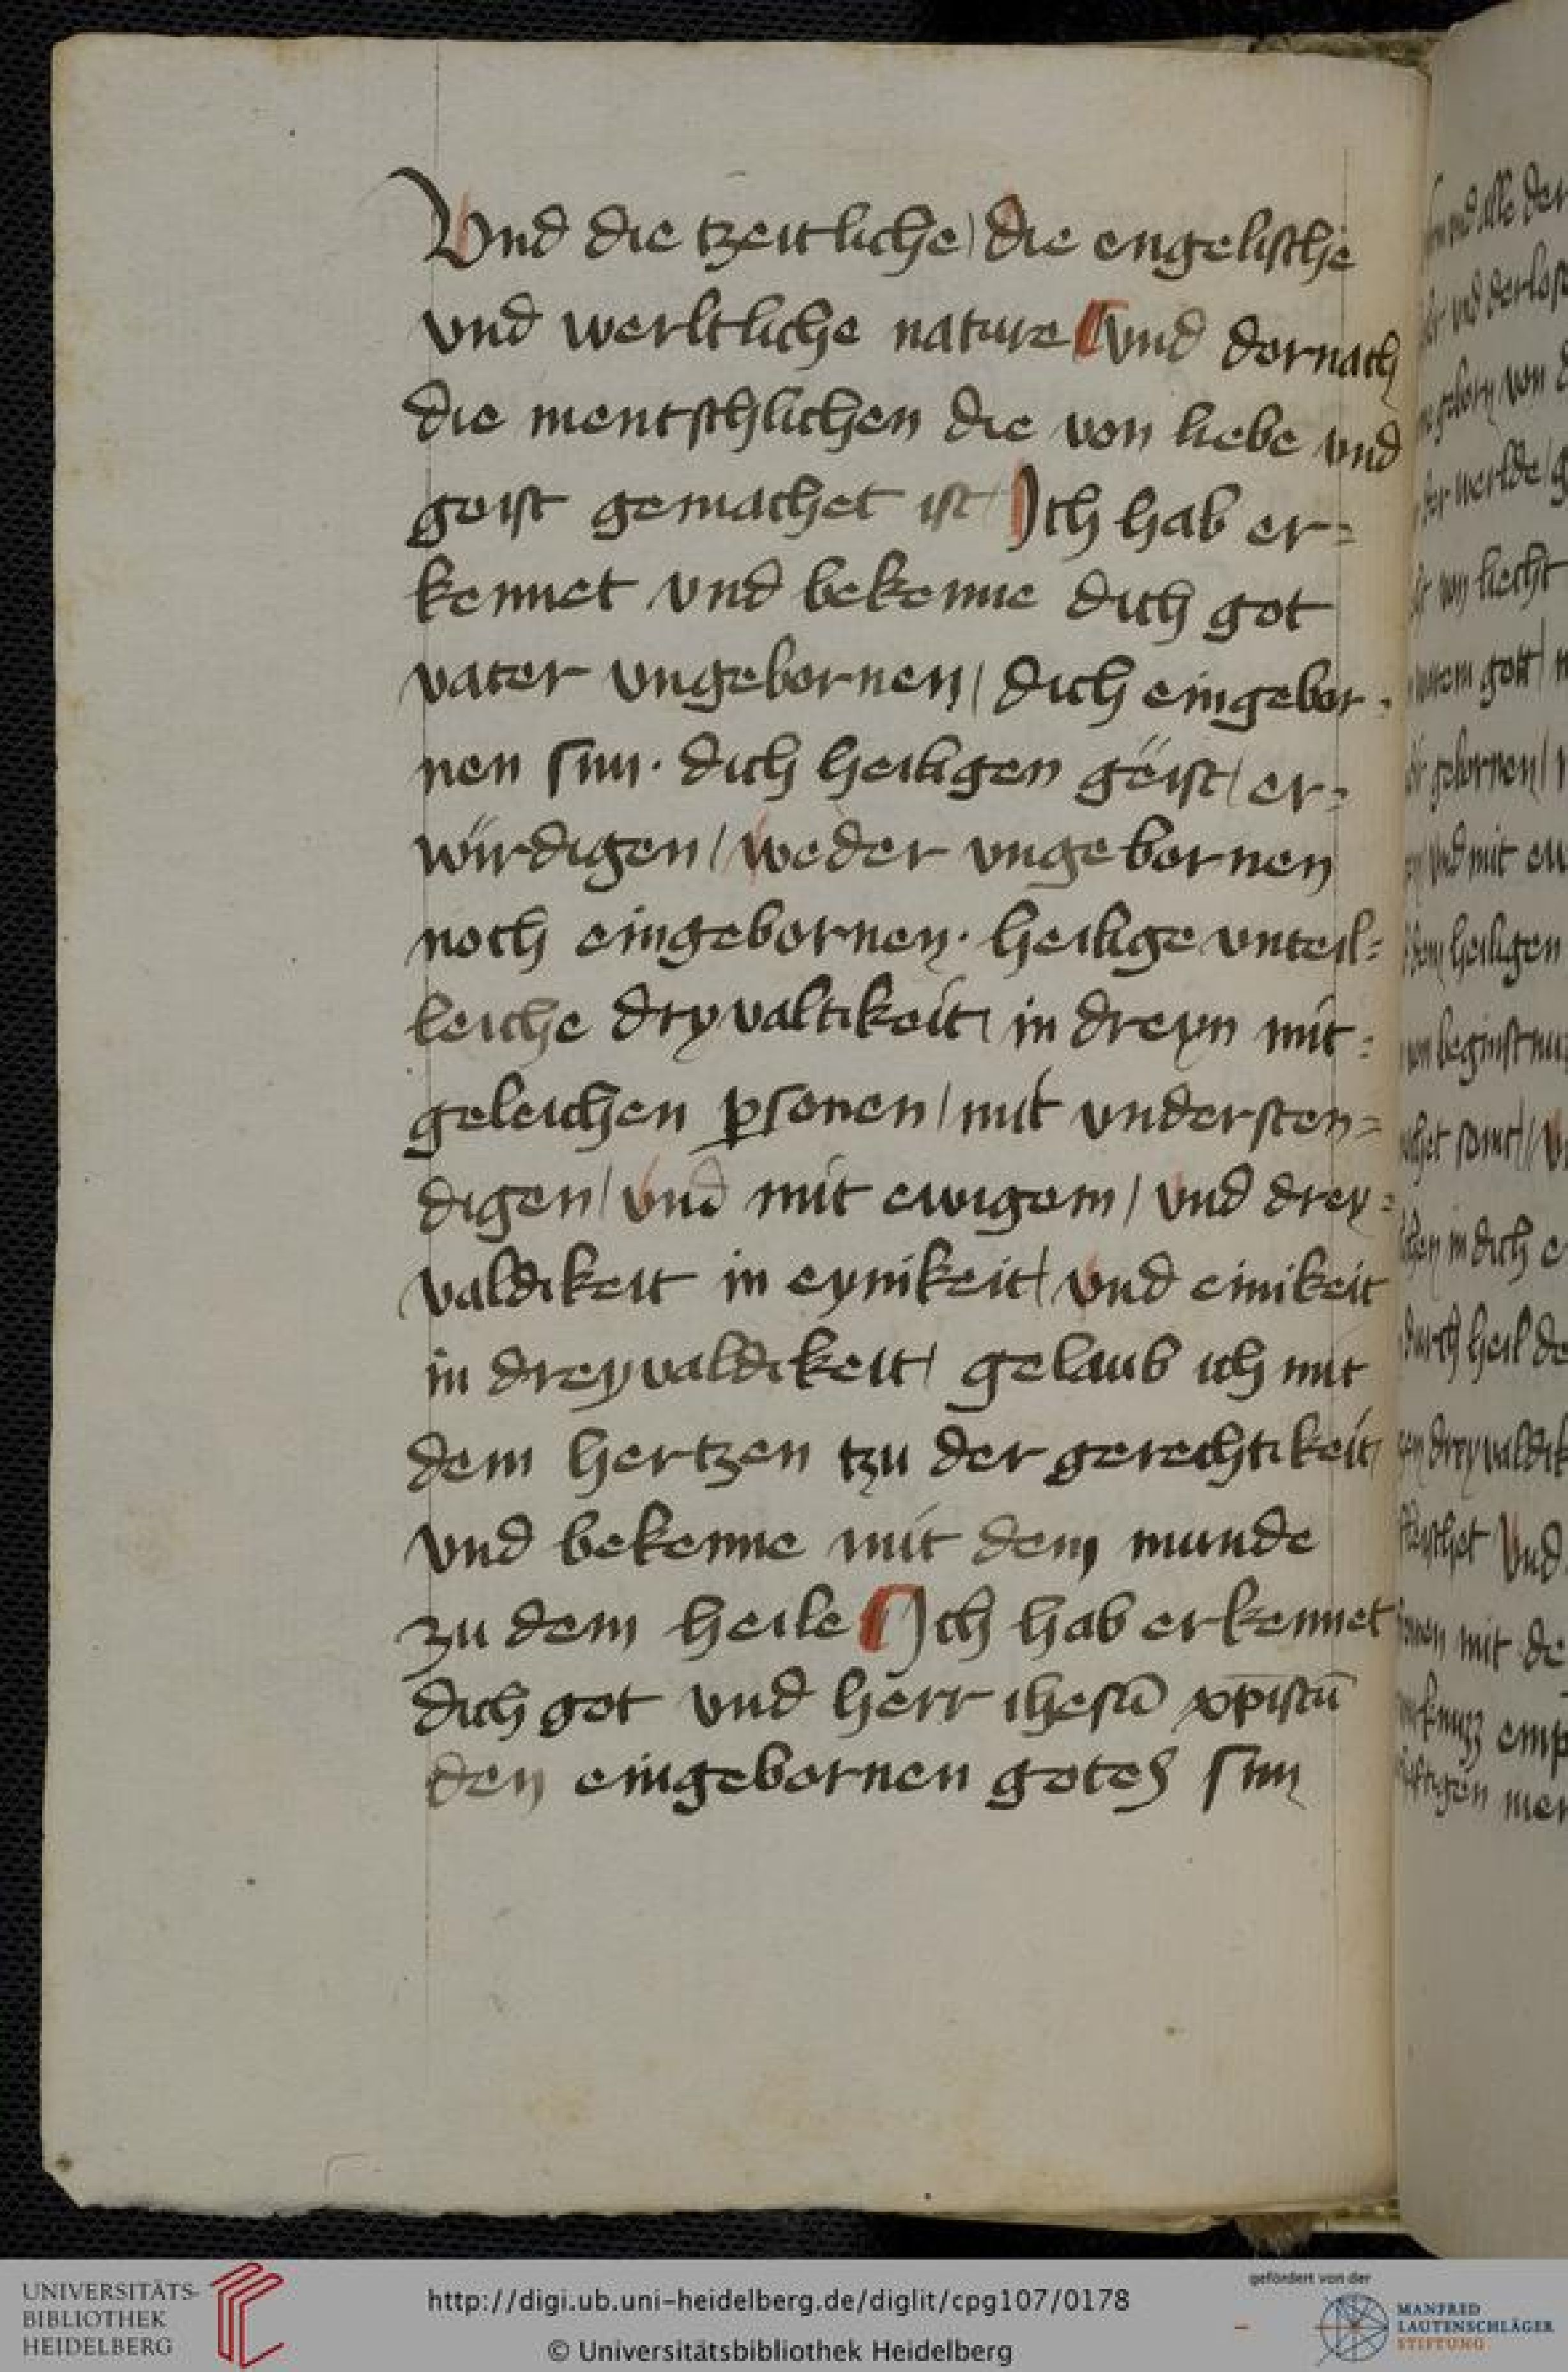 Vnd die tzeitliche / die engelische
vnd werltliche nature vnd dornach
die mentschlichen die von liebe vnd
geist gemachet ist / Ich hab er=
kennet vnd bekenne dich got
vater vngebornen / dich eingebor=
nen sun · dich heiligen gëist / er=
würdigen / weder vngebornen
noch eingebornen · heilige vnteil=
leiche dryvaltikeit / in dreyn mit=
geleichen ꝑsonen / mit vndersten=
digen / vnd mit ewigem / vnd drey=
valdikeit in eynikeit / vnd einikeit
in dreyvaldikeit / gelaub ich mit
dem hertzen tzu der gerechtikeit /
vnd bekenne mit dem munde
zu dem heile Ich hab erkennet
dich got vnd herr ihesū xp̄istū
den eingebornen gotes sun
UNIVERSITÄTS-
BIBLIOTHEK
HEIDELBERG
http://digi.ub.uni-heidelberg.de/diglit/cpg107/0178
© Universitätsbibliothek Heidelberg
gefördert von der
MANFRED
LAUTENSCHLÄGER
STIFTUNG